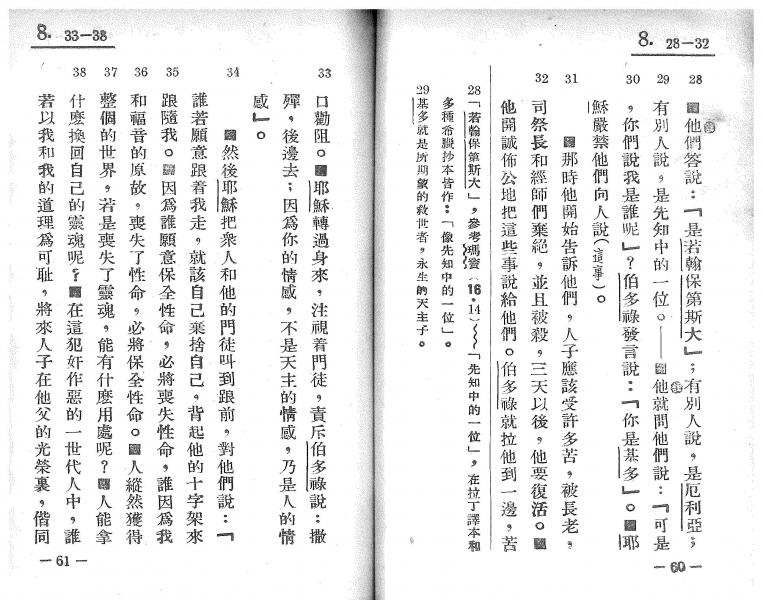 8. 28—32
28 ▩他們答說：「是若翰保第斯大」；有別人說，是厄利亞；
29 有別人說，是先知中的一位。——▩他就問他們說：「可是
30 ，你們說我是誰呢」？伯多祿發言說：「你是基多」。▩耶
穌嚴禁他們向人說（這事）。
31 ▩那時他開始告訴他們，人子應該受許多苦，被長老，
32 司祭長和經師們棄絕，並且被殺，三天以後，他要復活。▩
他開誠佈公地把這些事說給他們。伯多祿就拉他到一邊，苦
28 「若翰保第斯大」，參考瑪竇（16·14）「先知中的一位」，在拉丁譯本和
多種希臘抄本皆作：「像先知中的一位」。
29 基多就是所期望的救世者，永生的天主子。
—60—
8. 33—38
33 口勸阻。▩耶穌轉過身來，注視着門徒，責斥伯多祿說：撒
殫，後邊去；因爲你的情感，不是天主的情感，乃是人的情
感」。
34 ▩然後耶穌把衆人和他的門徒叫到跟前，對他們說：「
誰若願意跟着我走，就該自己棄捨自己，背起他的十字架來
35 跟隨我。▩因爲誰願意保全性命，必將喪失性命，誰因爲我
36 和福音的原故，喪失了性命，必將保全性命。▩人縱然獲得
37 整個的世界，若是喪失了靈魂，能有什麽用處呢？▩人能拿
38 什麽換回自己的靈魂呢？▩在這犯奸作惡的一世代人中，誰
若以我和我的道理爲可耻，將來人子在他父的光榮裏，偕同
—61—